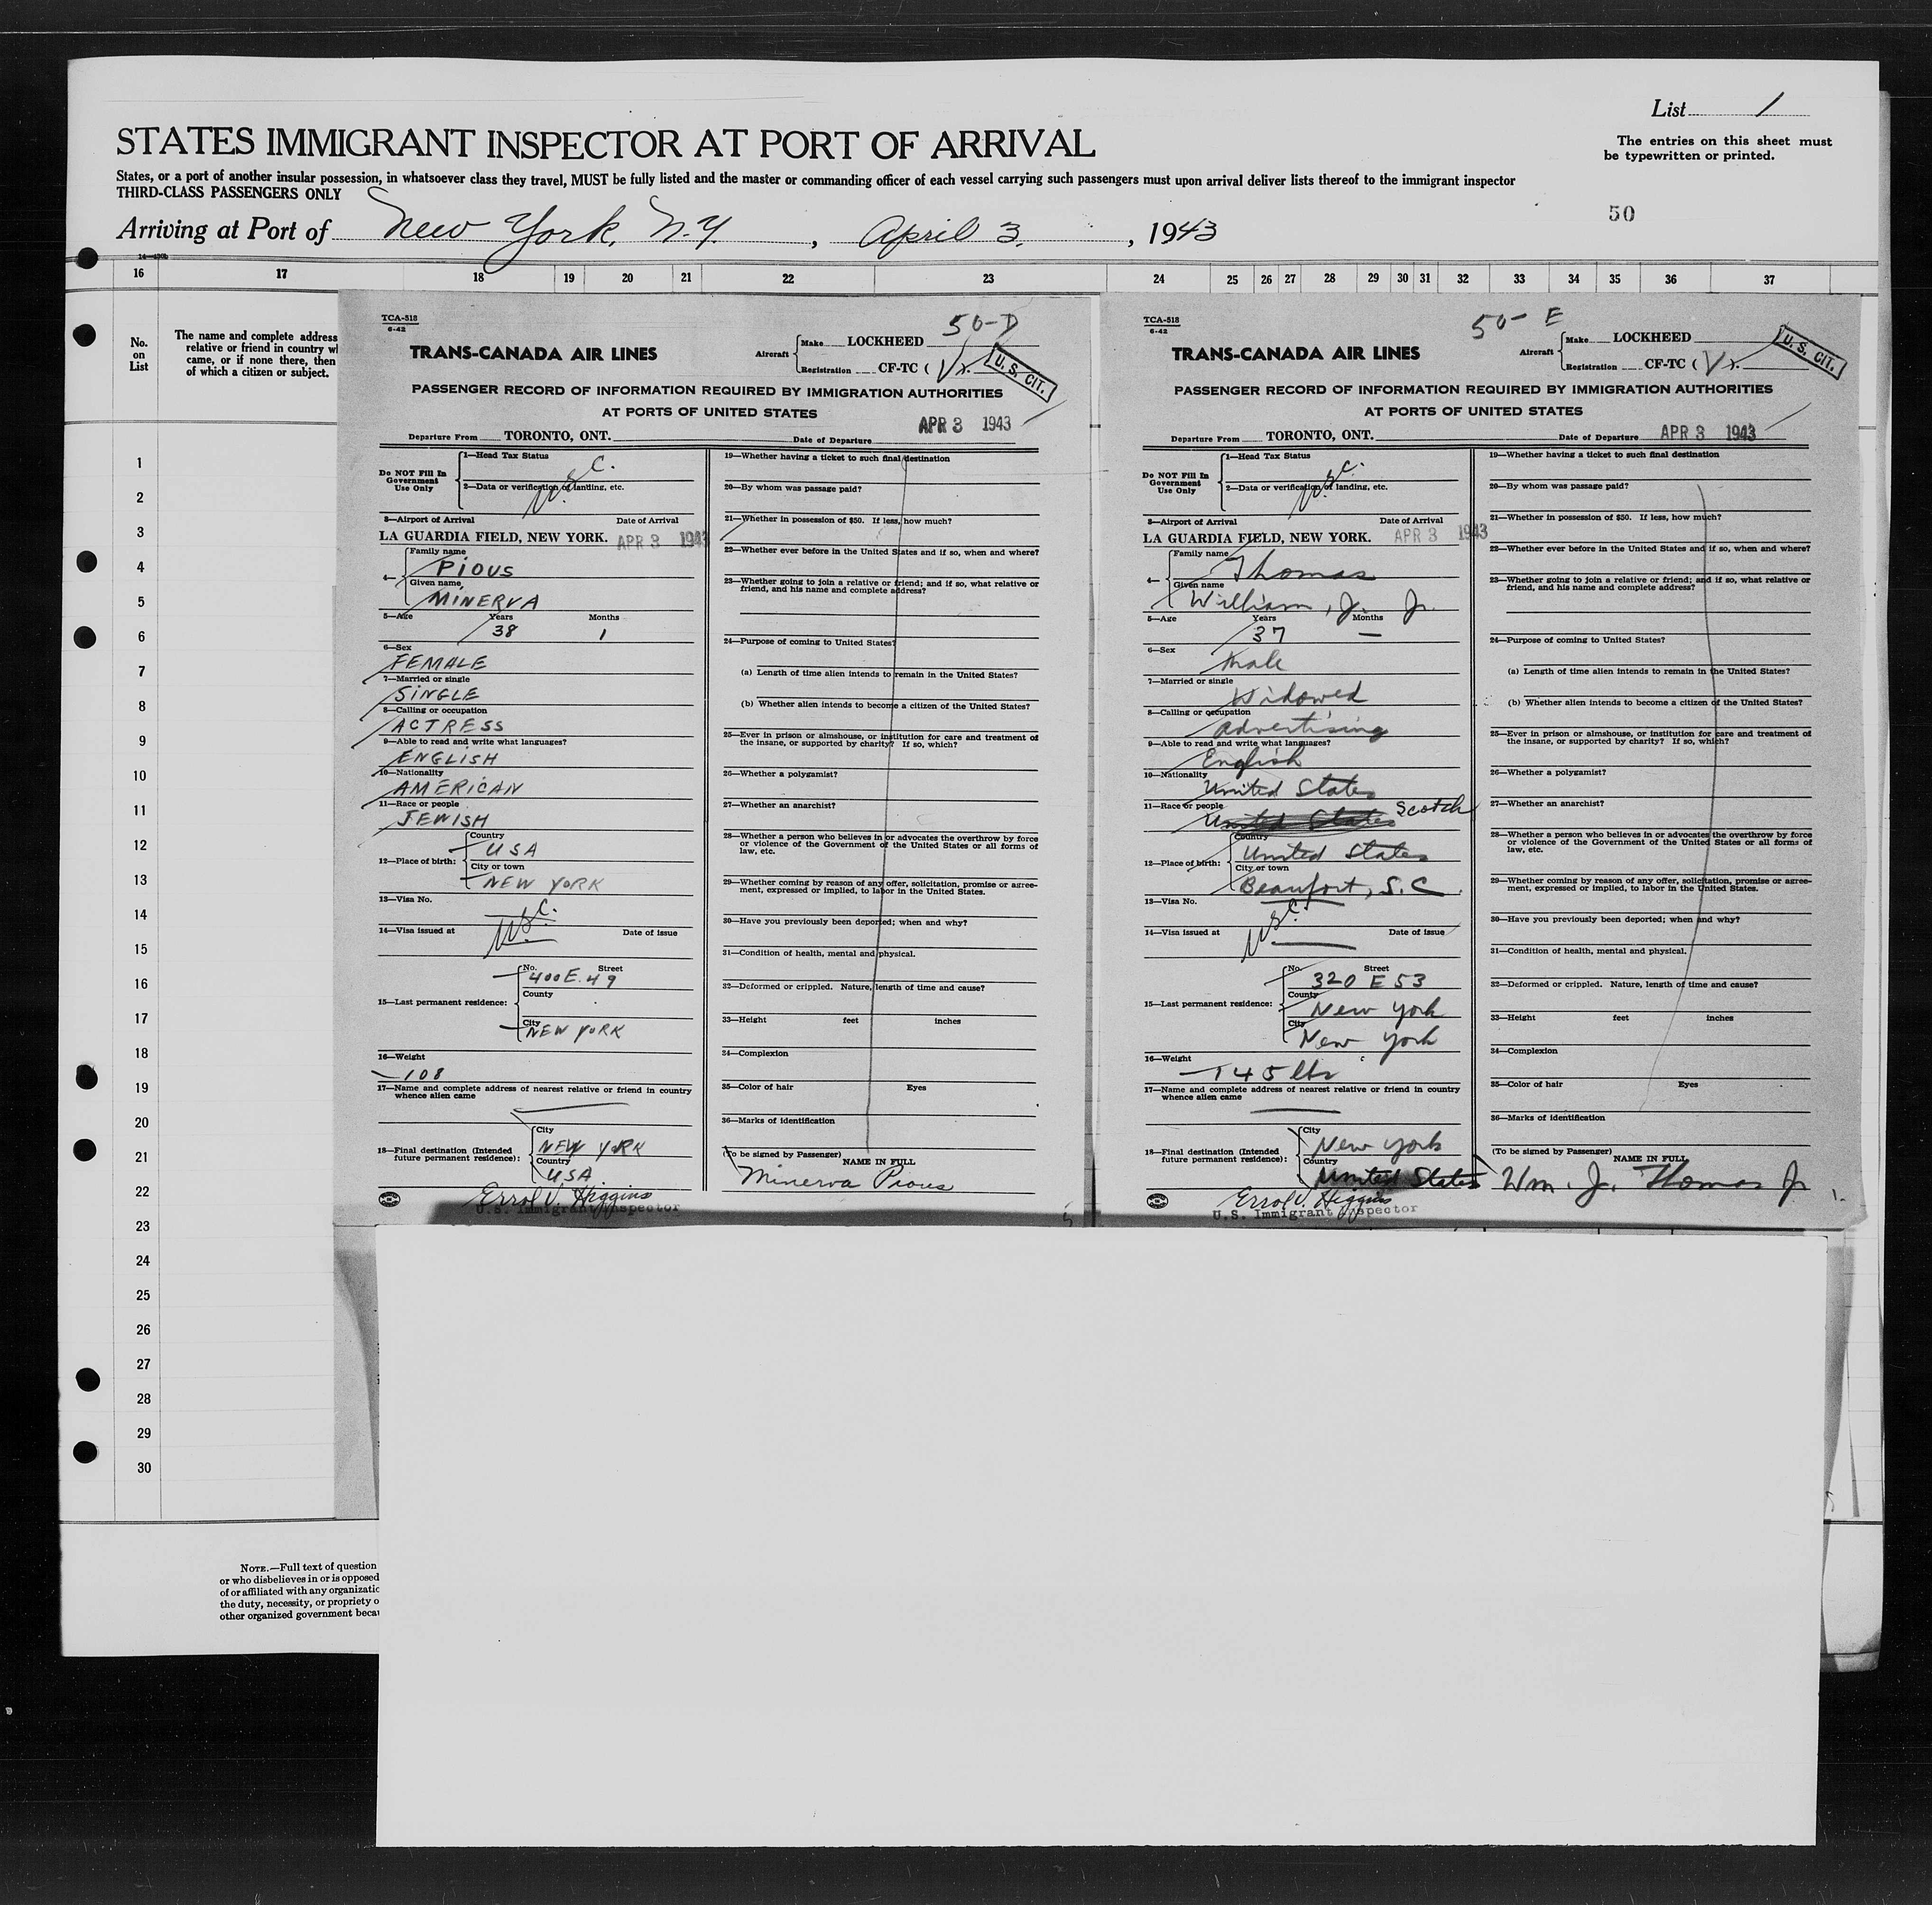 List 1
STATES IMMIGRANT INSPECTOR AT PORT OF ARRIVAL
The entries on this sheet must
be typewritten or printed.
States, or a port of another insular possession, in whatsoever class they travel, MUST be fully listed and the master or commanding officer of each vessel carrying such passengers must upon arrival deliver lists thereof to the immigrant inspector
THIRD-CLASS PASSENGERS ONLY
50
Arriving at Port of New York, N.Y., April 3, 1943
16 17 18 19 20 21 22 23 24 25 26 27 28 29 30 31 32 33 34 35 36 37
No.
on
List
The name and complete address
relative or friend in country wh
came, or if none there, then
of which a citizen or subject.
1
2
3
4
5
6
7
8
9
10
11
12
13
14
15
16
17
18
19
20
21
22
23
24
25
26
27
28
29
30
NOTE.—Full text of question
or who disbelieves in or is opposed
of or affiliated with any organizatio
the duty, necessity, or propriety o
other organized government becau
TCA-518
6-42
50-D
TRANS-CANADA AIR LINES
Aircraft Make LOCKHEED
Registration CF-TC (
U. S. CIT.
PASSENGER RECORD OF INFORMATION REQUIRED BY IMMIGRATION AUTHORITIES
AT PORTS OF UNITED STATES
Departure From TORONTO, ONT. Date of Departure APR 3 1943
Do NOT Fill In
Government
Use Only
1—Head Tax Status
2—Data or verification of landing, etc.
U.S.C.
3—Airport of Arrival Date of Arrival
LA GUARDIA FIELD, NEW YORK. APR 3 1943
4— Family name
PIOUS
Given name
MINERVA
5—Age Years Months
38 1
6—Sex
FEMALE
7—Married or single
SINGLE
8—Calling or occupation
ACTRESS
9—Able to read and write what languages?
ENGLISH
10—Nationality
AMERICAN
11—Race or people
JEWISH
12—Place of birth: Country
USA
City or town
NEW YORK
13—Visa No.
U.S.C.
14—Visa issued at Date of issue
15—Last permanent residence: No. Street
400 E. 49
County
City
NEW YORK
16—Weight
108
17—Name and complete address of nearest relative or friend in country
whence alien came
18—Final destination (Intended
future permanent residence):
City
NEW YORK
Country
USA
Errol V. Higgins
U.S. Immigrant Inspector
19—Whether having a ticket to such final destination
20—By whom was passage paid?
21—Whether in possession of $50. If less, how much?
22—Whether ever before in the United States and if so, when and where?
23—Whether going to join a relative or friend; and if so, what relative or
friend, and his name and complete address?
24—Purpose of coming to United States?
(a) Length of time alien intends to remain in the United States?
(b) Whether alien intends to become a citizen of the United States?
25—Ever in prison or almshouse, or institution for care and treatment of
the insane, or supported by charity? If so, which?
26—Whether a polygamist?
27—Whether an anarchist?
28—Whether a person who believes in or advocates the overthrow by force
or violence of the Government of the United States or all forms of
law, etc.
29—Whether coming by reason of any offer, solicitation, promise or agree-
ment, expressed or implied, to labor in the United States.
30—Have you previously been deported; when and why?
31—Condition of health, mental and physical.
32—Deformed or crippled. Nature, length of time and cause?
33—Height feet inches
34—Complexion
35—Color of hair Eyes
36—Marks of identification
(To be signed by Passenger)
NAME IN FULL
Minerva Pious
TCA-518
6-42
50-E
TRANS-CANADA AIR LINES
Aircraft Make LOCKHEED
Registration CF-TC (
U. S. CIT.
PASSENGER RECORD OF INFORMATION REQUIRED BY IMMIGRATION AUTHORITIES
AT PORTS OF UNITED STATES
Departure From TORONTO, ONT. Date of Departure APR 3 1943
Do NOT Fill In
Government
Use Only
1—Head Tax Status
2—Data or verification of landing, etc.
U.S.C.
3—Airport of Arrival Date of Arrival
LA GUARDIA FIELD, NEW YORK. APR 3 1943
4— Family name
Thomas
Given name
William, J. Jr.
5—Age Years Months
37 —
6—Sex
Male
7—Married or single
Widowed
8—Calling or occupation
Advertising
9—Able to read and write what languages?
English
10—Nationality
United States
11—Race or people
United States Scotch
12—Place of birth: Country
United States
City or town
Beaufort, S.C
13—Visa No.
U.S.C.
14—Visa issued at Date of issue
15—Last permanent residence: No. Street
320 E 53
County
New York
City
New York
16—Weight
145 lbs
17—Name and complete address of nearest relative or friend in country
whence alien came
18—Final destination (Intended
future permanent residence):
City
New York
Country
United States
Errol V. Higgins
U.S. Immigrant Inspector
19—Whether having a ticket to such final destination
20—By whom was passage paid?
21—Whether in possession of $50. If less, how much?
22—Whether ever before in the United States and if so, when and where?
23—Whether going to join a relative or friend; and if so, what relative or
friend, and his name and complete address?
24—Purpose of coming to United States?
(a) Length of time alien intends to remain in the United States?
(b) Whether alien intends to become a citizen of the United States?
25—Ever in prison or almshouse, or institution for care and treatment of
the insane, or supported by charity? If so, which?
26—Whether a polygamist?
27—Whether an anarchist?
28—Whether a person who believes in or advocates the overthrow by force
or violence of the Government of the United States or all forms of
law, etc.
29—Whether coming by reason of any offer, solicitation, promise or agree-
ment, expressed or implied, to labor in the United States.
30—Have you previously been deported; when and why?
31—Condition of health, mental and physical.
32—Deformed or crippled. Nature, length of time and cause?
33—Height feet inches
34—Complexion
35—Color of hair Eyes
36—Marks of identification
(To be signed by Passenger)
NAME IN FULL
Wm. J. Thomas Jr